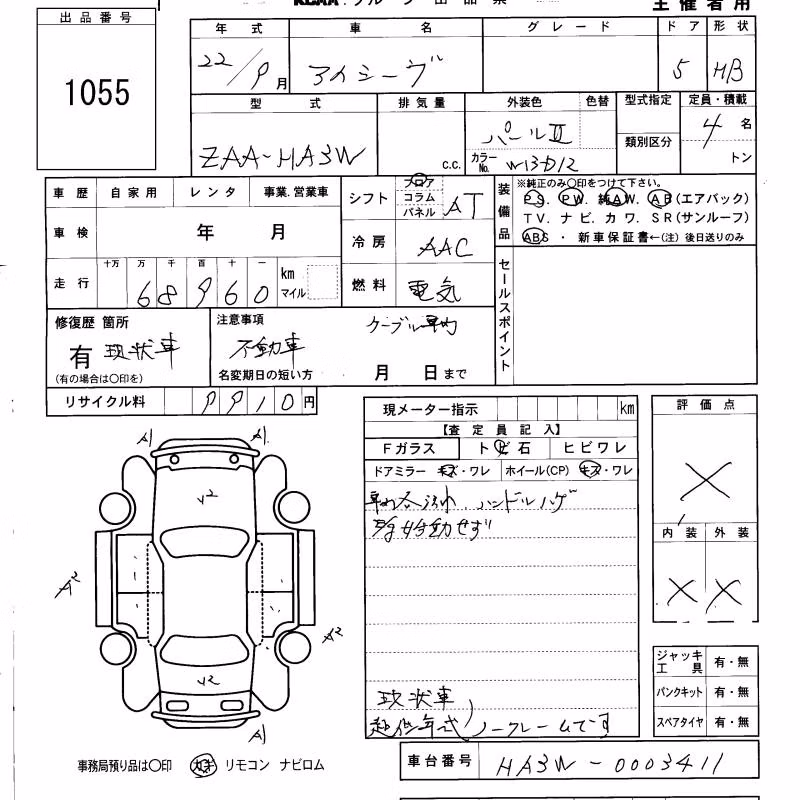 出品番号
1055
主催者用
年式 車名 グレード ドア 形状
22/9月 アイミーヴ 5 HB
型式 排気量 外装色 色替 型式指定 定員・積載
ZAA-HA3W c.c. パールⅡ 4名
類別区分
カラーNo. W13-D12 トン
車歴 自家用 レンタ 事業.営業車
シフト フロア コラム パネル AT
装備品 ※純正のみ○印をつけて下さい。
P.S. P.W. 純A.W. A.B(エアバック)
T V. ナビ. カワ. SR(サンルーフ)
ABS ・ 新車保証書←(注) 後日送りのみ
車検 年 月
冷房 AAC
走行 十万 万 千 百 十 一 km マイル
68960
燃料 電気
セールスポイント
修復歴 箇所
有 現状車
(有の場合は○印を)
注意事項
不動車
名変期日の短い方 月 日まで
リサイクル料 9910円
現メーター指示 km
【査定員記入】
Fガラス ト ビ石 ヒビワレ
ドアミラー キズ・ワレ ホイール(CP) キズ・ワレ
ハンドルハゲ
現状車
超低年式ノークレームです
評価点
X
内装 外装
X X
ジャッキ工具 有・無
パンクキット 有・無
スペアタイヤ 有・無
A1 A1
√2
A2
A2
√2
A1
事務局預り品は○印 カギ リモコン ナビロム
車台番号 HA3W-0003411